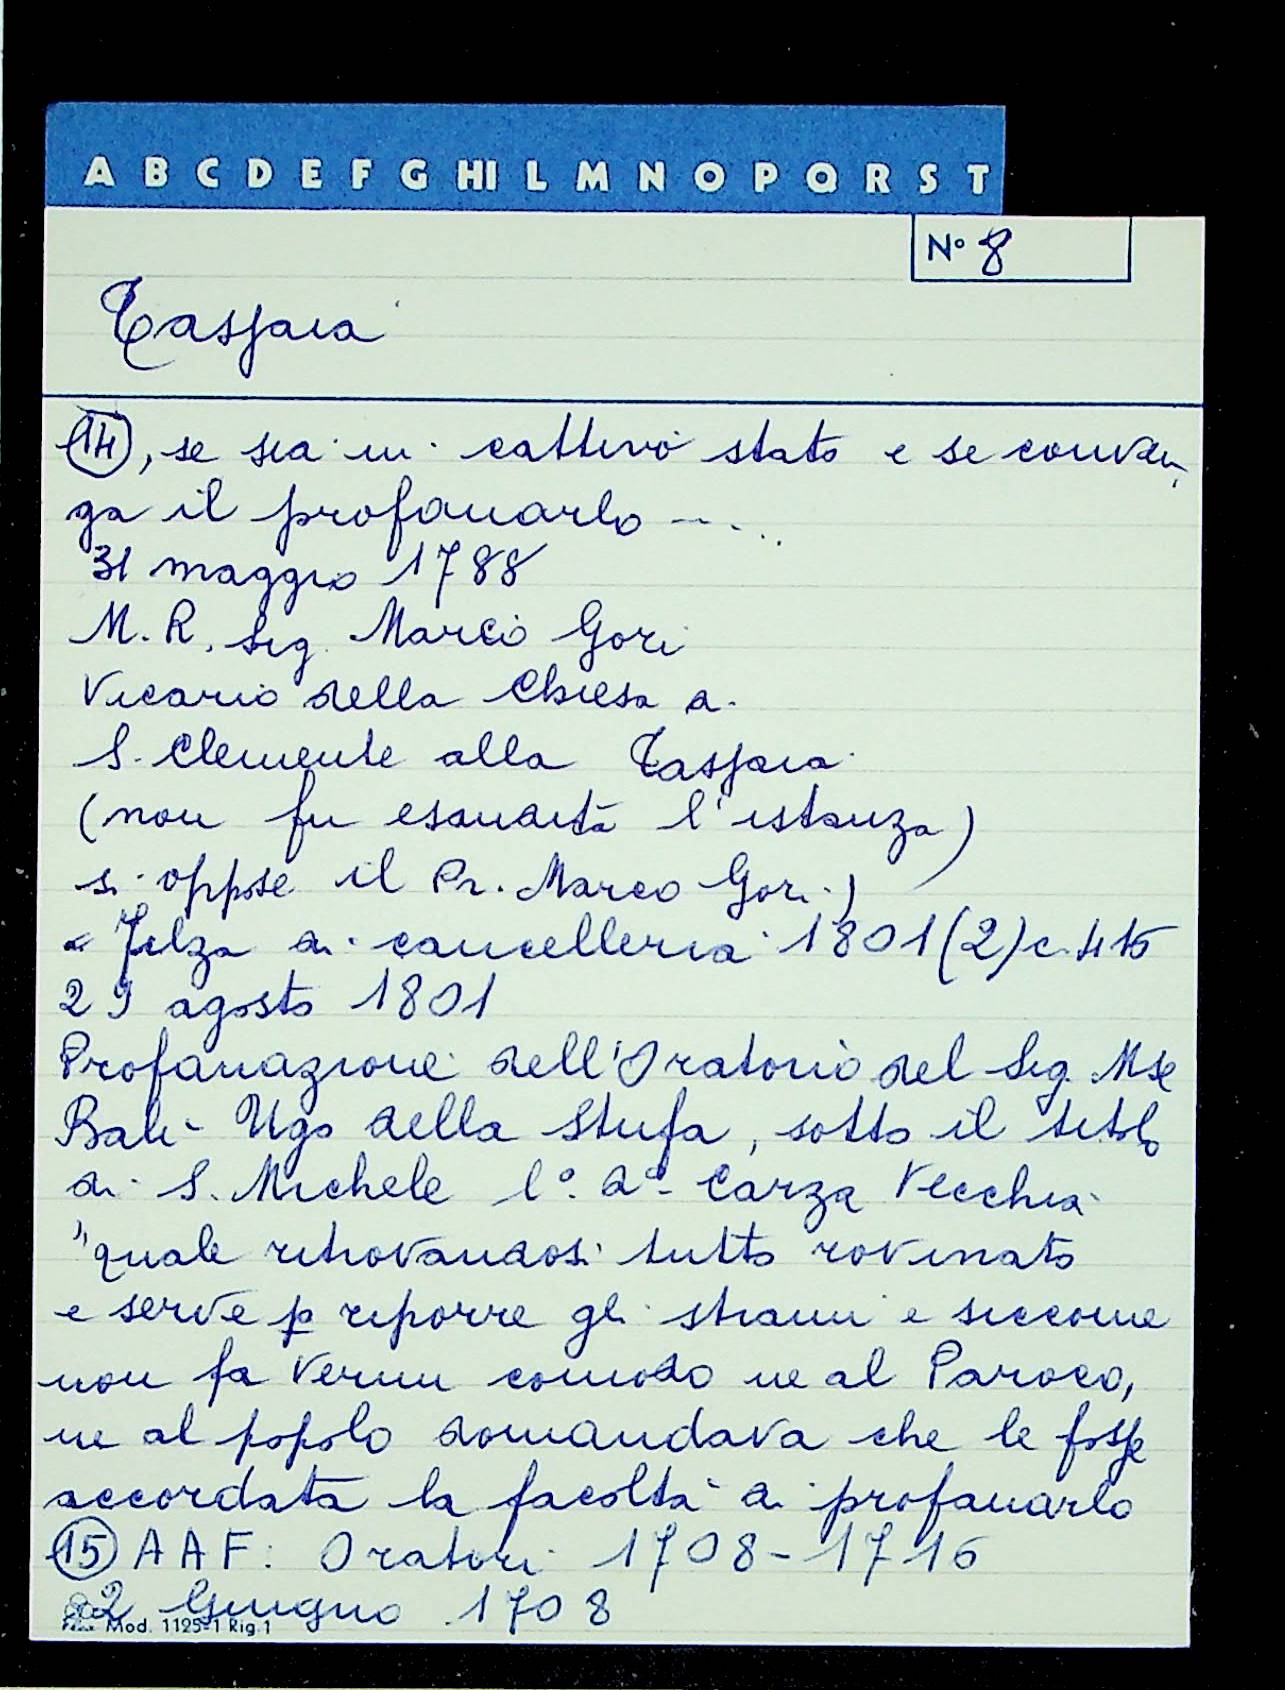 A B C D E F G HI L M N O P Q R S T
N° 8
Tassaia
14, se sia in cattivo stato e se conven
ga il profanarlo -...
31 maggio 1788
M. R. Sig. Marco Gori
Vicario della Chiesa di
S. Clemente alla Tassaia
(non fu esaudita l'istanza)
si oppose il Pr. Marco Gori)
Filza di cancelleria 1801 (2) c. 415
29 agosto 1801
Profanazione dell'Oratorio del Sig. Mse
Balì Ugo della Stufa, sotto il titolo
di S. Michele l.° d.° Carza Vecchia
"quale ritrovandosi tutto rovinato
e serve p riporre gli strami e siccome
non fa verun comodo ne al Paroco,
ne al popolo domandava che le fosse
accordata la facoltà di profanarlo
15 A A F: Oratori 1708-1716
2 Giugno 1708
Mod. 1125-1 Rig. 1